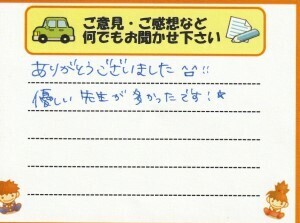 ご意見・ご感想など
何でもお聞かせ下さい
ありがとうございました ^^!!
優しい先生が多かったです!☆